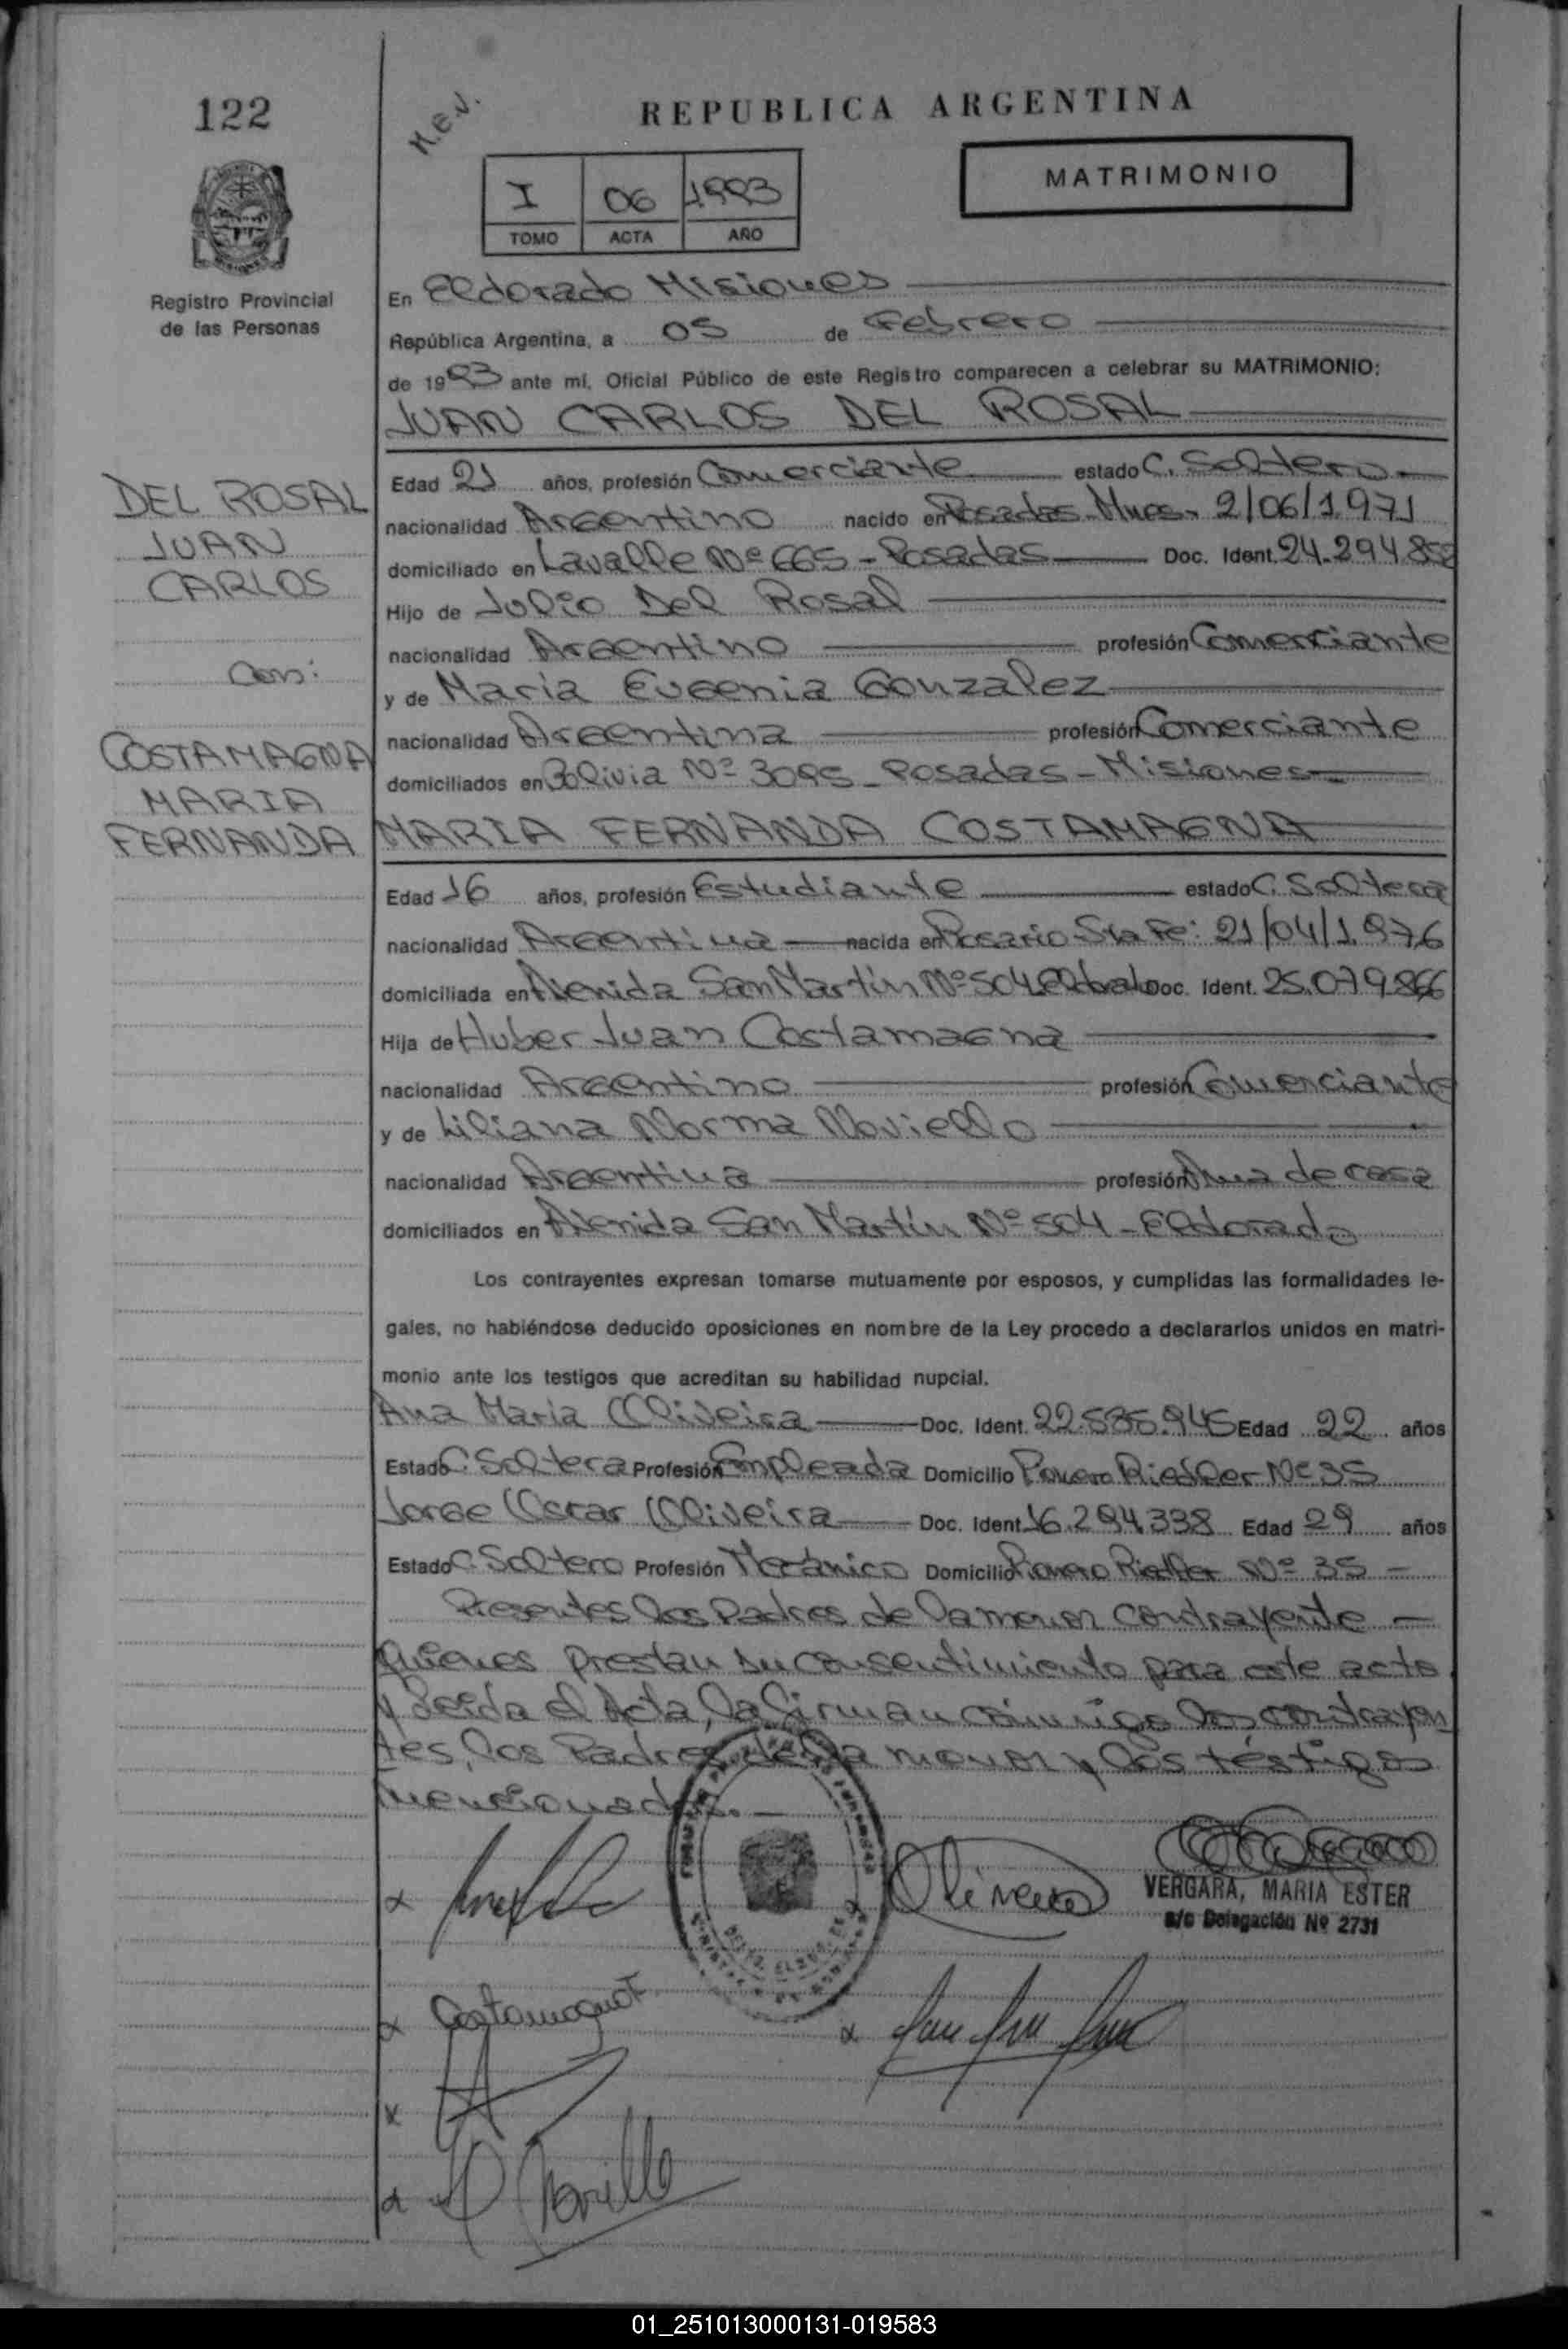 122
M.E.J.
REPUBLICA ARGENTINA
MATRIMONIO
I 06 1993
TOMO ACTA AÑO
Registro Provincial
de las Personas
En Eldorado Misiones
República Argentina, a 05 de Febrero
de 1993 ante mí, Oficial Público de este Registro comparecen a celebrar su MATRIMONIO:
JUAN CARLOS DEL ROSAL
DEL ROSAL
JUAN
CARLOS
Con:
COSTAMAGNA
MARIA
FERNANDA
Edad 21 años, profesión Comerciante estado C. Soltero
nacionalidad Argentino nacido en Posadas Mnes. 2/06/1971
domiciliado en Lavalle Nº 665 - Posadas Doc. Ident. 24.294.852
Hijo de Julio Del Rosal
nacionalidad Argentino profesión Comerciante
y de Maria Eugenia Gonzalez
nacionalidad Argentina profesión Comerciante
domiciliados en Bolivia Nº 3095 - Posadas - Misiones
MARIA FERNANDA COSTAMAGNA
Edad 16 años, profesión Estudiante estado C. Soltera
nacionalidad Argentina nacida en Rosario Sta Fe: 21/04/1976
domiciliada en Avenida San Martín Nº 504 Doc. Ident. 25.079.866
Hija de Huber Juan Costamagna
nacionalidad Argentino profesión Comerciante
y de Liliana Norma Noviello
nacionalidad Argentina profesión Ama de casa
domiciliados en Avenida San Martín Nº 504 - Eldorado
Los contrayentes expresan tomarse mutuamente por esposos, y cumplidas las formalidades le-
gales, no habiéndose deducido oposiciones en nombre de la Ley procedo a declararlos unidos en matri-
monio ante los testigos que acreditan su habilidad nupcial.
Ana Maria Oliveira Doc. Ident. 22.535.945 Edad 22 años
Estado C. Soltera Profesión Empleada Domicilio Riedler Nº 35
Jorge Oscar Oliveira Doc. Ident. 16.294.338 Edad 29 años
Estado C. Soltero Profesión Mecánico Domicilio Riedler Nº 35 -
Presentes los Padres de la menor contrayente -
Quienes prestan su consentimiento para este acto
y leida el Acta, la firman conmigo los contrayen
tes, los Padres de la menor y los testigos
mencionados. -
Oliveira
VERGARA, MARIA ESTER
a/c Delegación Nº 2731
x
x Costamagna F
x
x
x
01_251013000131-019583